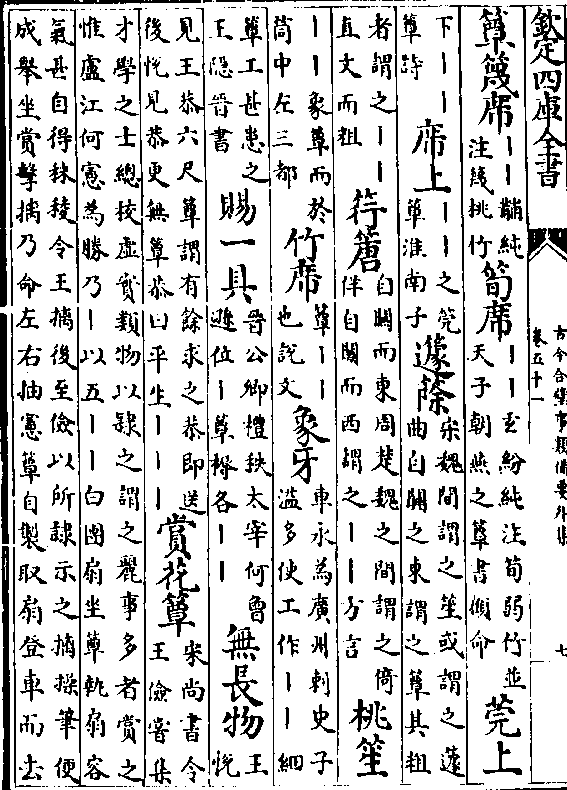 欽定四庫全書
古今合璧事類備要外集
卷五十一
七
簟篾席丨丨黼純注篾桃竹筍席丨丨玄紛純注筍弱竹並天子朝燕之簟書傾命莞上
下丨丨簟詩席上丨丨之莞簟淮南子籧篨宋魏間謂之笙或謂之籧曲自關之東謂之簟其粗
者謂之丨丨直文而粗符簹自關而東周楚魏之間謂之倚佯自關而西謂之丨丨方言桃笙
丨丨象簟而於筒中左三都竹席簟丨丨也說文象牙車永為廣州刺史子滥多使工作丨丨細
簟工甚患之王隠晉書賜一具晉公卿禮秩太宰何曾遜位丨簟褥各丨丨無長物王悅
見王恭六尺簟謂有餘求之恭即送後悅見恭更無簟恭曰平生丨丨丨賞花簟宋尚書令王儉嘗集
才學之士總校虛實類物以隸之謂之麗事多者賞之惟盧江何憲為勝乃丨以五丨丨白團扇坐簟執扇容
氣甚自得秣稜令王摛後至儉以所隷示之摛操筆便成舉坐賞擊摛乃命左右抽憲簟自製取扇登車而去